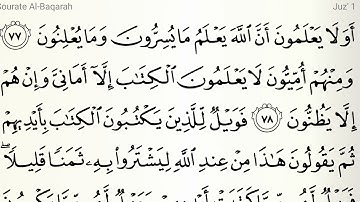 Sourate Al-Baqarah
Juz' 1
أَوَلَا يَعْلَمُونَ أَنَّ ٱللَّهَ يَعْلَمُ مَا يُسِرُّونَ وَمَا يُعْلِنُونَ ٧٧
وَمِنْهُمْ أُمِّيُّونَ لَا يَعْلَمُونَ ٱلْكِتَٰبَ إِلَّآ أَمَانِىَّ وَإِنْ هُمْ
إِلَّا يَظُنُّونَ ٧٨ فَوَيْلٌ لِّلَّذِينَ يَكْتُبُونَ ٱلْكِتَٰبَ بِأَيْدِيهِمْ
ثُمَّ يَقُولُونَ هَٰذَا مِنْ عِندِ ٱللَّهِ لِيَشْتَرُوا۟ بِهِۦ ثَمَنًا قَلِيلًا ۖ